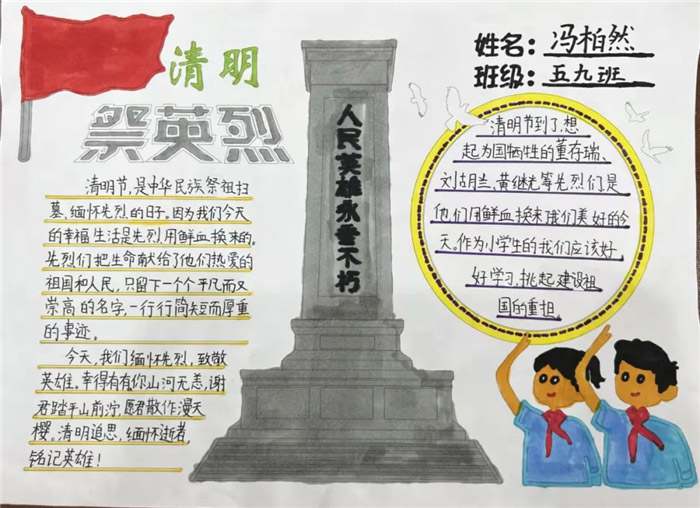 清明
祭英烈
清明节,是中华民族祭祖扫
墓,缅怀先烈的日子。因为我们今天
的幸福生活是先烈用鲜血换来的。
先烈们把生命献给了他们热爱的
祖国和人民,只留下一个个平凡而又
崇高的名字,一行行简短而厚重
的事迹。
今天,我们缅怀先烈,致敬
英雄。幸得有有你山河无恙,谢
君踏平山前泞,愿君散作漫天
樱。清明追思,缅怀逝者,
铭记英雄!
人民英雄永垂不朽
姓名:冯柏然
班级:五九班
清明节到了,想
起为国牺牲的董存瑞、
刘胡兰、黄继光等先烈们,是
他们用鲜血换来我们美好的今
天。作为小学生的我们应该好
好学习,挑起建设祖
国的重担。